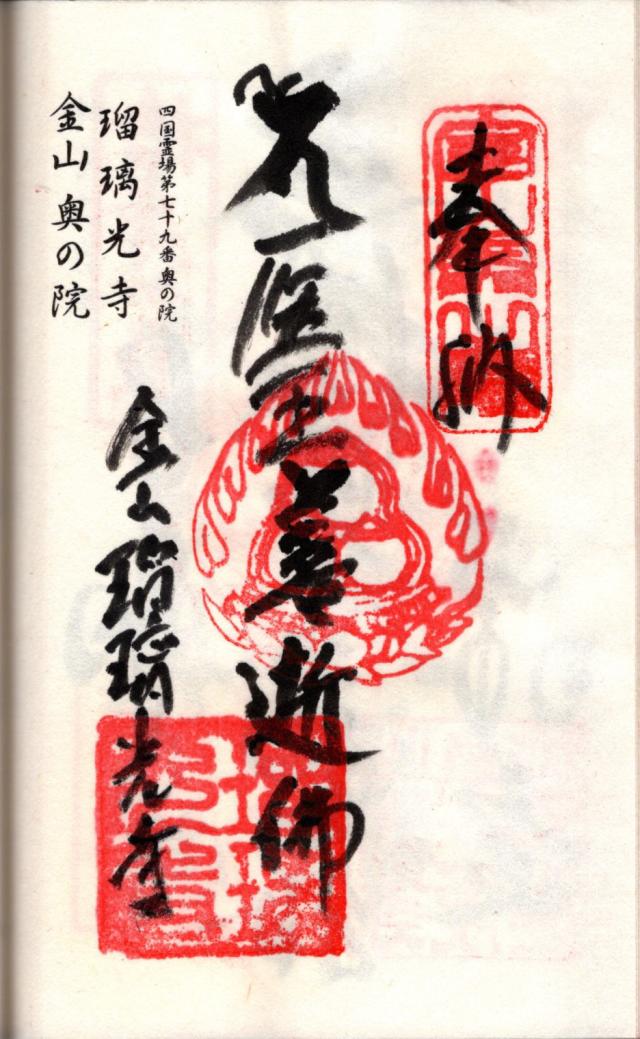 奉納
医王善逝師
四国霊場第七十九番奥の院
瑠璃光寺
金山奥の院
金山瑠璃光寺